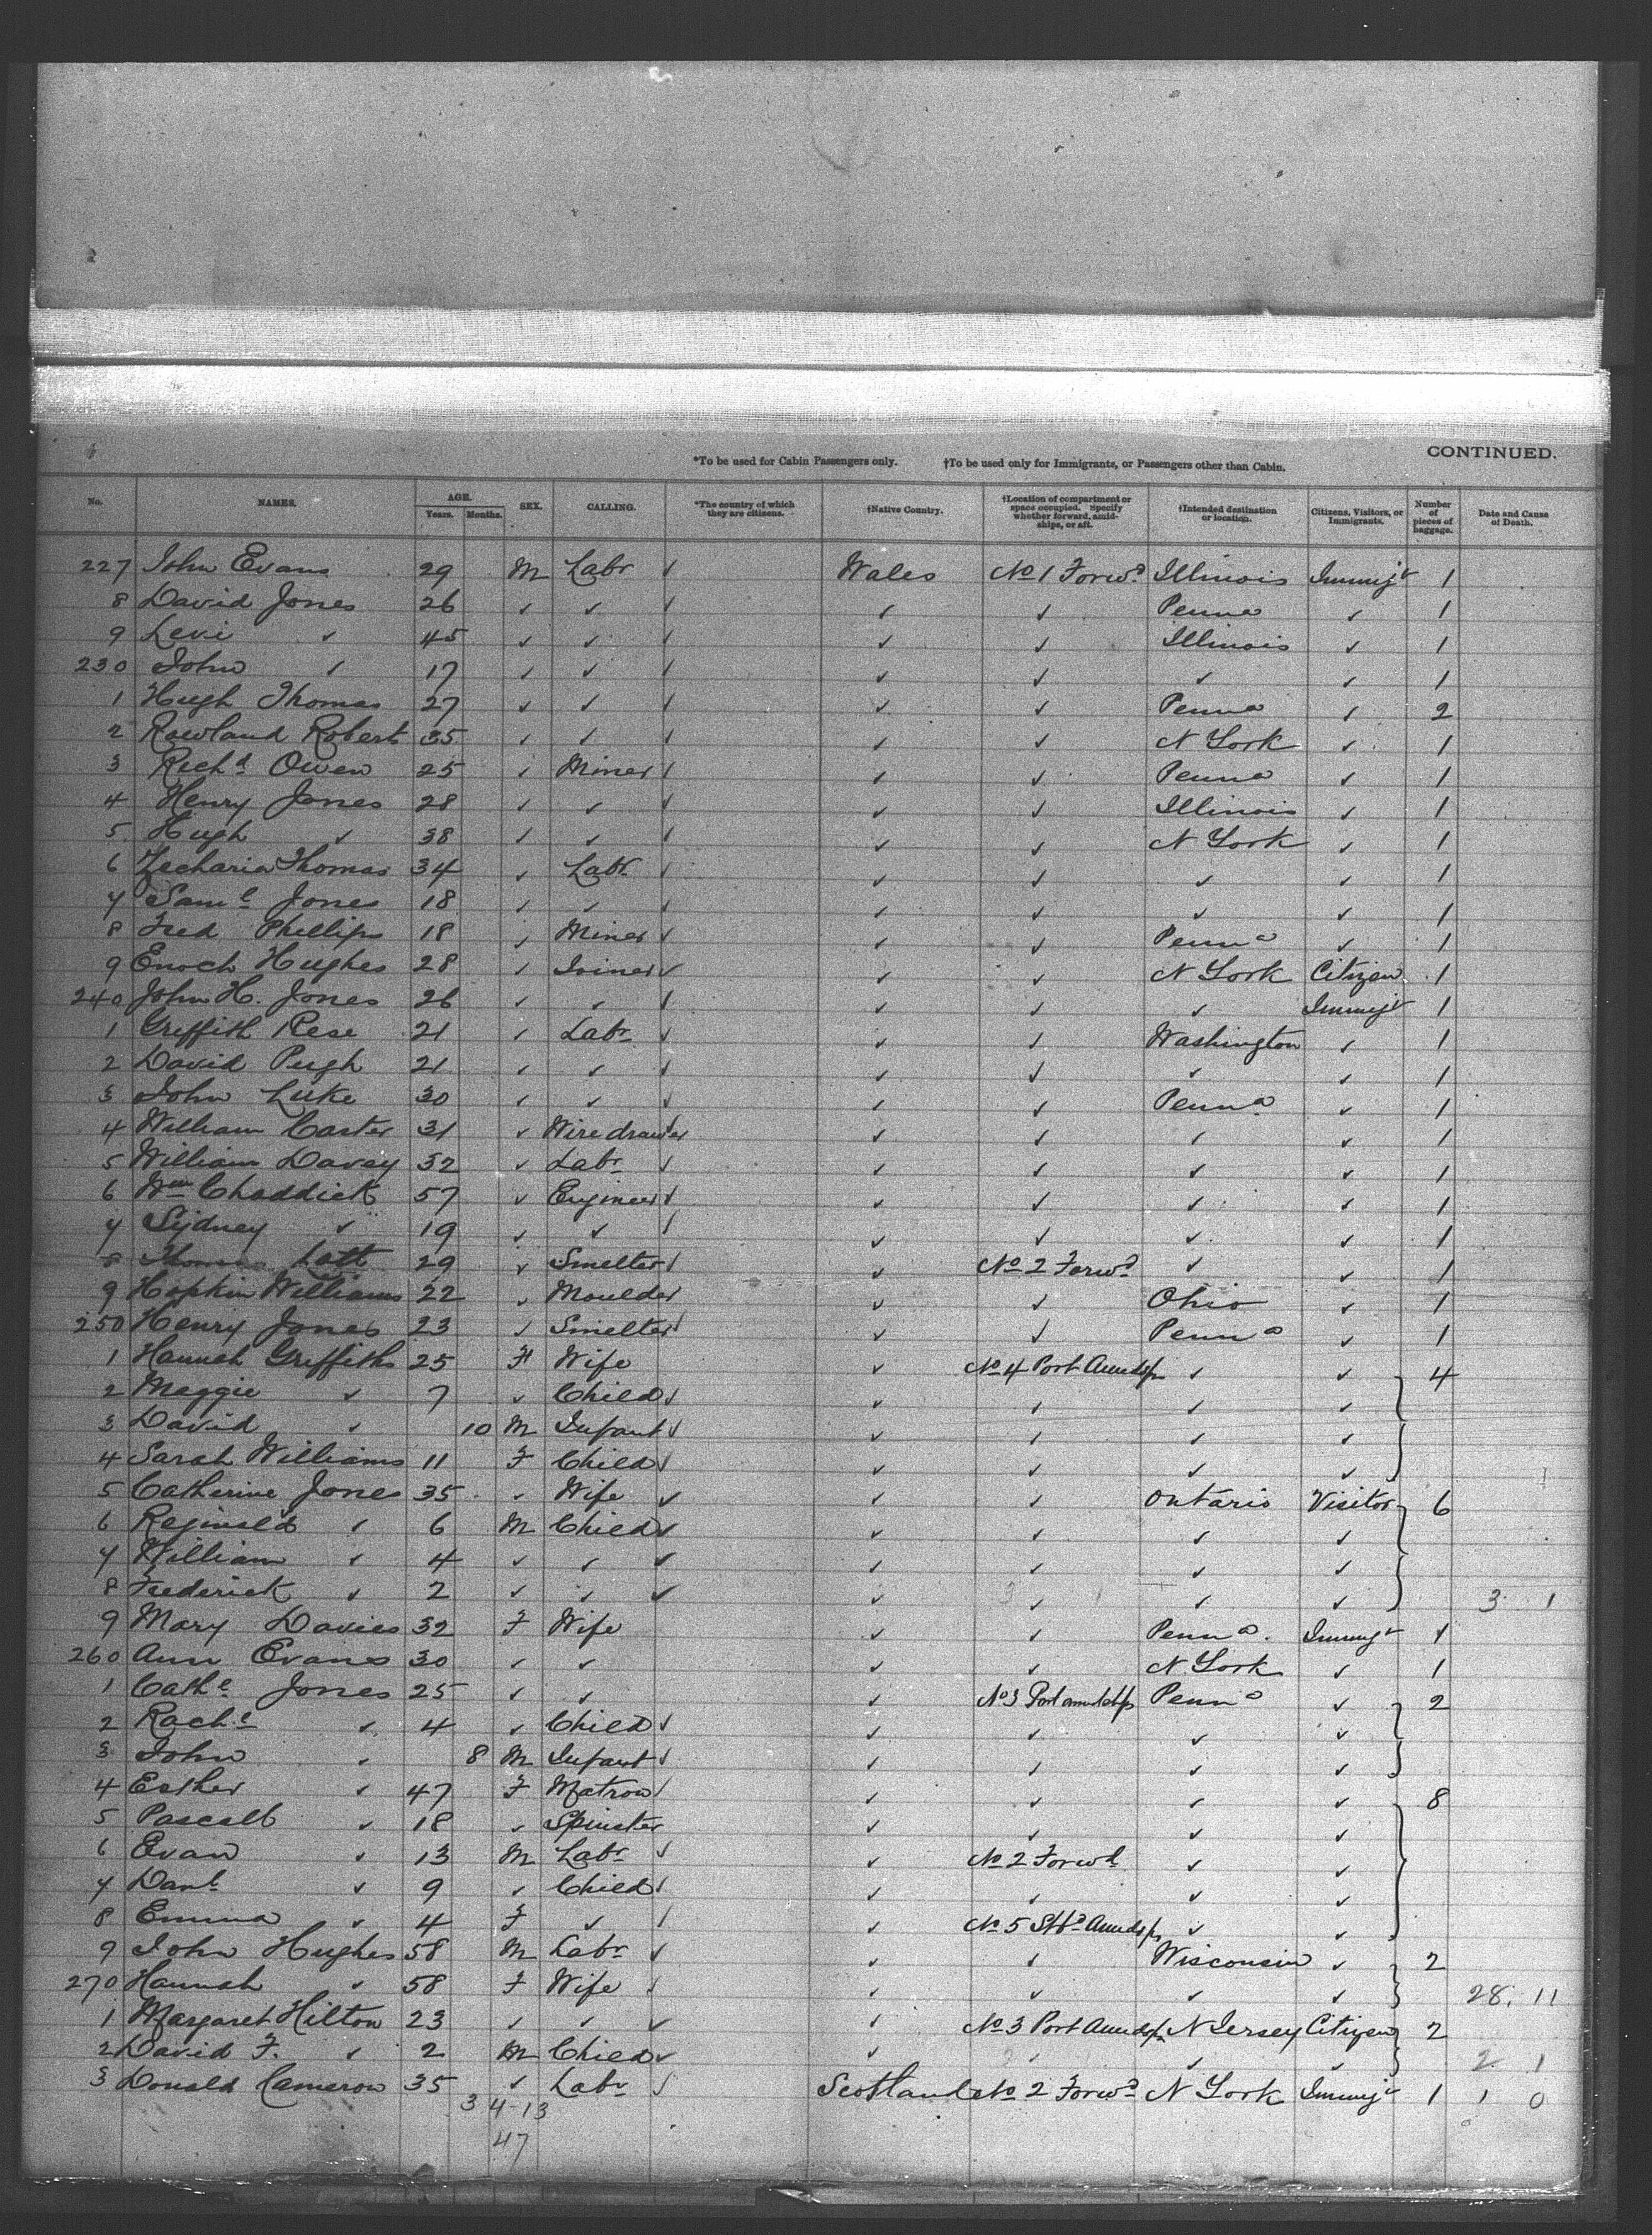 CONTINUED.
*To be used for Cabin Passengers only. †To be used only for Immigrants, or Passengers other than Cabin.
No. NAMES. AGE. Years. Months. SEX. CALLING. *The country of which they are citizens. †Native Country. †Location of compartment or space occupied. Specify whether forward, amidships, or aft. †Intended destination or location. Citizens, Visitors, or Immigrants. Number of pieces of baggage. Date and Cause of Death.
227 John Evans 29 M Labr ✓ Wales No 1 Forwd Illinois Immigt 1
8 David Jones 26 ✓ ✓ ✓ ✓ ✓ Penna ✓ 1
9 Levi ✓ 45 ✓ ✓ ✓ ✓ ✓ Illinois ✓ 1
230 John ✓ 17 ✓ ✓ ✓ ✓ ✓ ✓ ✓ 1
1 Hugh Thomas 27 ✓ ✓ ✓ ✓ ✓ Penna ✓ 2
2 Rowland Robert 35 ✓ ✓ ✓ ✓ ✓ N York ✓ 1
3 Richd Owen 25 ✓ Miner ✓ ✓ ✓ Penna ✓ 1
4 Henry Jones 28 ✓ ✓ ✓ ✓ ✓ Illinois ✓ 1
5 Hugh ✓ 38 ✓ ✓ ✓ ✓ ✓ N York ✓ 1
6 Zecharia Thomas 34 ✓ Labr ✓ ✓ ✓ ✓ ✓ 1
7 Saml Jones 18 ✓ ✓ ✓ ✓ ✓ ✓ ✓ 1
8 Fred Phillips 18 ✓ Miner ✓ ✓ ✓ Penna ✓ 1
9 Enoch Hughes 28 ✓ Joiner ✓ ✓ ✓ N York Citizen 1
240 John H. Jones 26 ✓ ✓ ✓ ✓ ✓ ✓ Immigt 1
1 Griffith Rese 21 ✓ Labr ✓ ✓ ✓ Washington ✓ 1
2 David Pugh 21 ✓ ✓ ✓ ✓ ✓ ✓ ✓ 1
3 John Luke 30 ✓ ✓ ✓ ✓ ✓ Penna ✓ 1
4 William Carter 31 ✓ Wire drawer ✓ ✓ ✓ ✓ ✓ 1
5 William Davey 32 ✓ Labr ✓ ✓ ✓ ✓ ✓ 1
6 Wm Chaddick 57 ✓ Engineer ✓ ✓ ✓ ✓ ✓ 1
7 Sydney ✓ 19 ✓ ✓ ✓ ✓ ✓ ✓ ✓ 1
8 Thomas 29 ✓ Smelter ✓ ✓ No 2 Forwd ✓ ✓ 1
9 Hopkin Williams 22 ✓ Moulder ✓ ✓ ✓ Ohio ✓ 1
250 Henry Jones 23 ✓ Smelter ✓ ✓ ✓ Penna ✓ 1
1 Hannah Griffiths 25 F Wife ✓ No 4 Port Amidsp ✓ ✓ 4
2 Maggie ✓ 7 ✓ Child ✓ ✓ ✓ ✓ ✓
3 David ✓ 10 M Infant ✓ ✓ ✓ ✓ ✓
4 Sarah Williams 11 F Child ✓ ✓ ✓ ✓ ✓
5 Catherine Jones 35 ✓ Wife ✓ ✓ ✓ Ontario Visitor 6
6 Reginald ✓ 6 M Child ✓ ✓ ✓ ✓ ✓
7 William ✓ 4 ✓ ✓ ✓ ✓ ✓ ✓ ✓
8 Frederick ✓ 2 ✓ ✓ ✓ ✓ ✓ ✓ ✓ 3 1
9 Mary Davies 32 F Wife ✓ ✓ Penna. Immigt 1
260 Ann Evans 30 ✓ ✓ ✓ ✓ N York ✓ 1
1 Cathe Jones 25 ✓ ✓ ✓ No 3 Port amidshp Penna ✓ 2
2 Rachl ✓ 4 ✓ Child ✓ ✓ ✓ ✓ ✓
3 John ✓ 8 M Infant ✓ ✓ ✓ ✓ ✓
4 Esther ✓ 47 F Matron ✓ ✓ ✓ ✓ ✓ 8
5 ✓ 18 ✓ Spinster ✓ ✓ ✓ ✓
6 Evan ✓ 13 M Labr ✓ ✓ No 2 Forwd ✓ ✓
7 Danl ✓ 9 ✓ Child ✓ ✓ ✓ ✓ ✓
8 Emma ✓ 4 F ✓ ✓ ✓ No 5 Stbd Amidsps ✓ ✓
9 John Hughes 58 M Labr ✓ ✓ ✓ Wisconsin ✓ 2
270 Hannah ✓ 58 F Wife ✓ ✓ ✓ ✓ ✓ 28. 11
1 Margaret Hilton 23 ✓ ✓ ✓ ✓ No 3 Port Amidsp N Jersey Citizen 2
2 David F. ✓ 2 M Child ✓ ✓ ✓ ✓ ✓ 2 1
3 Donald Cameron 35 ✓ Labr ✓ Scotland No 2 Forwd N York Immigt 1 1 0
3 4-13
47